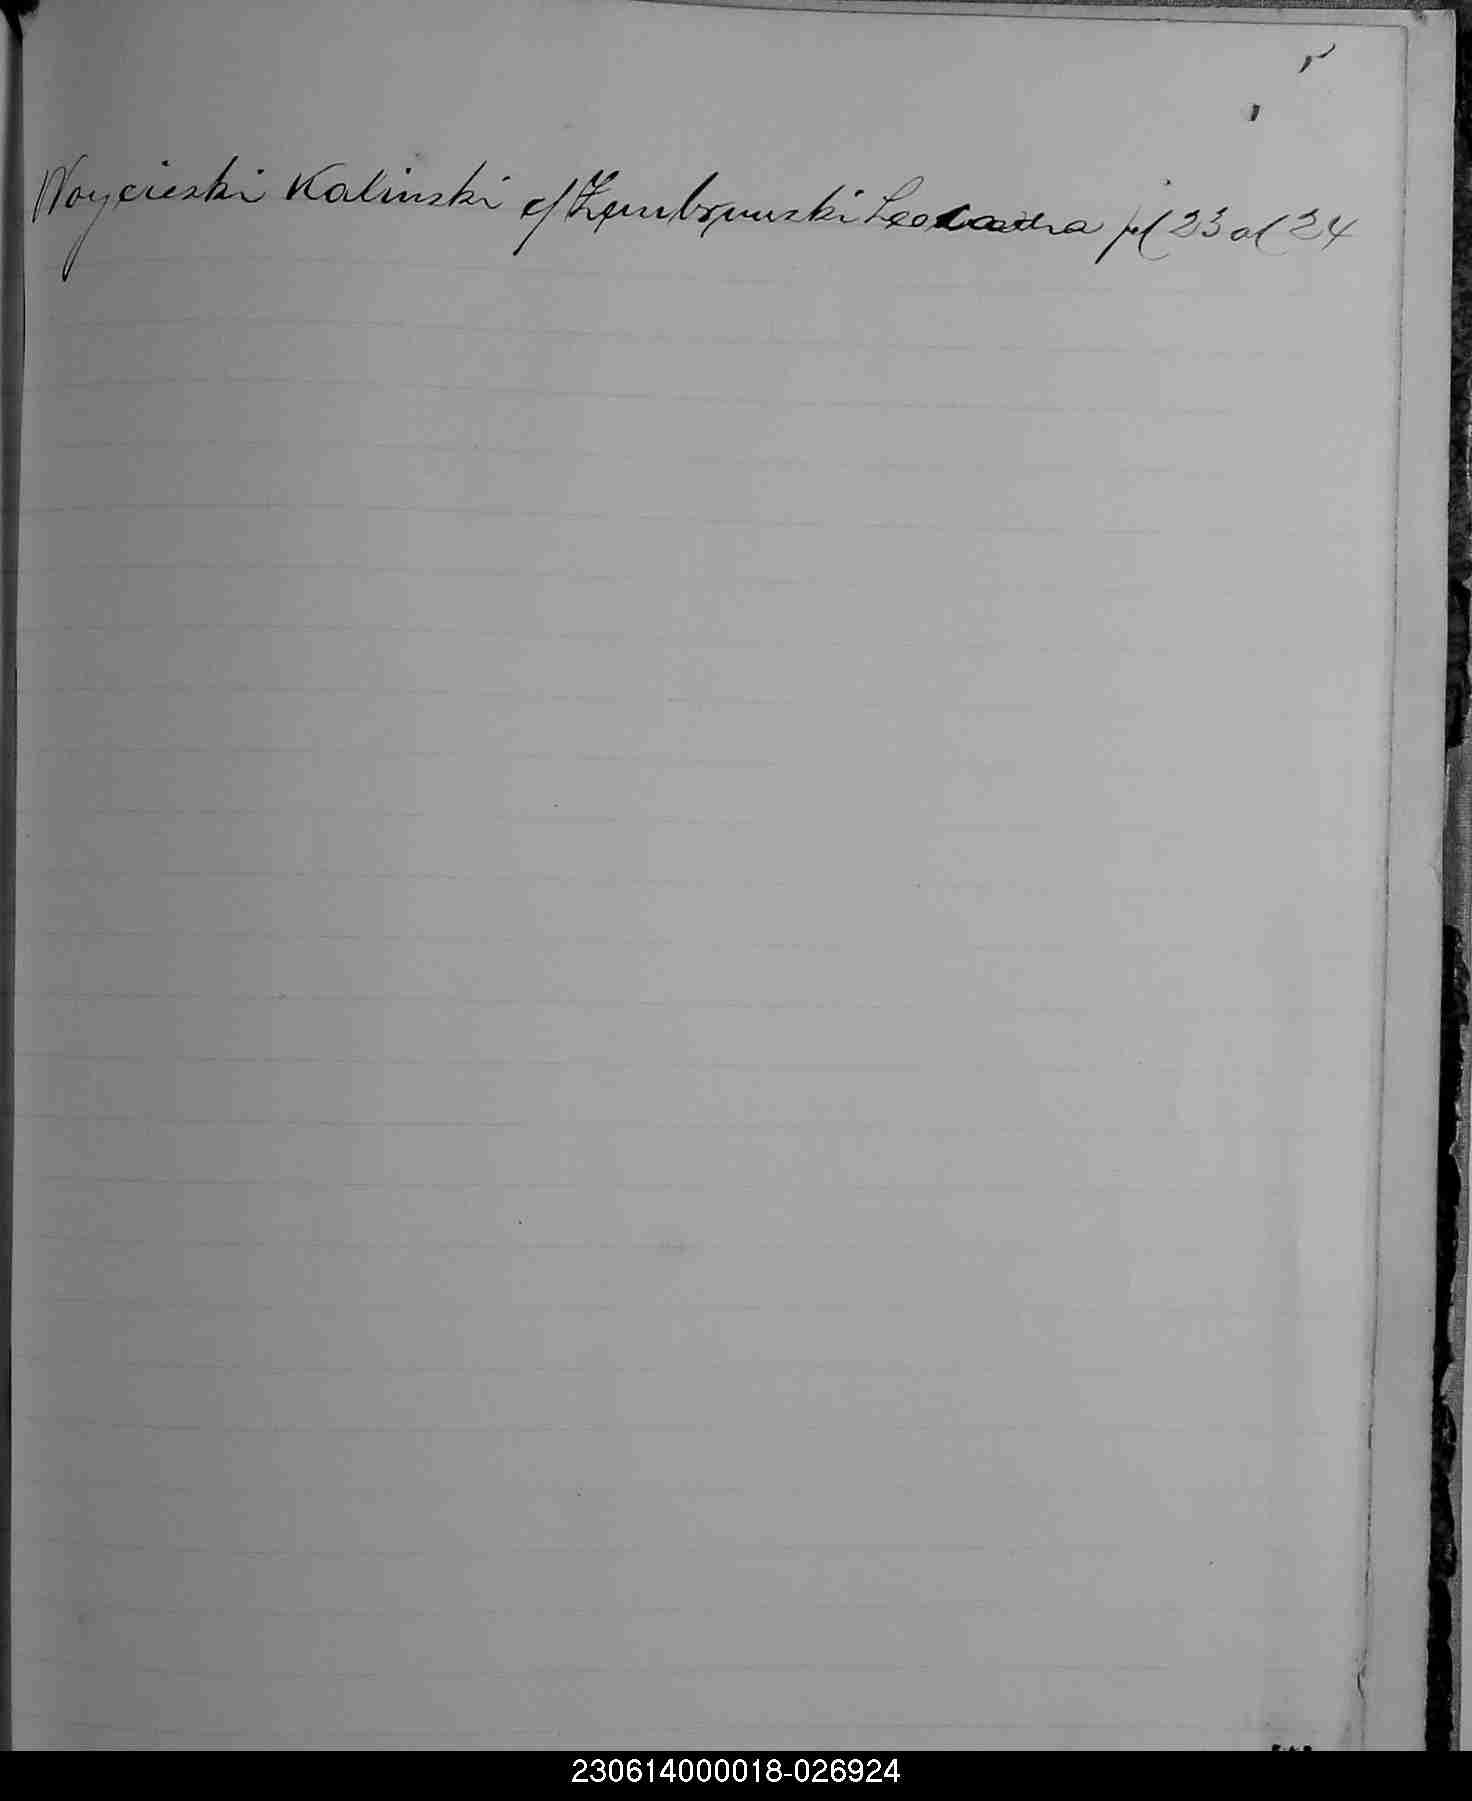 Woycieski Kalinski e/ Zembrzuski Leocadia pf 23 af 24
230614000018-026924